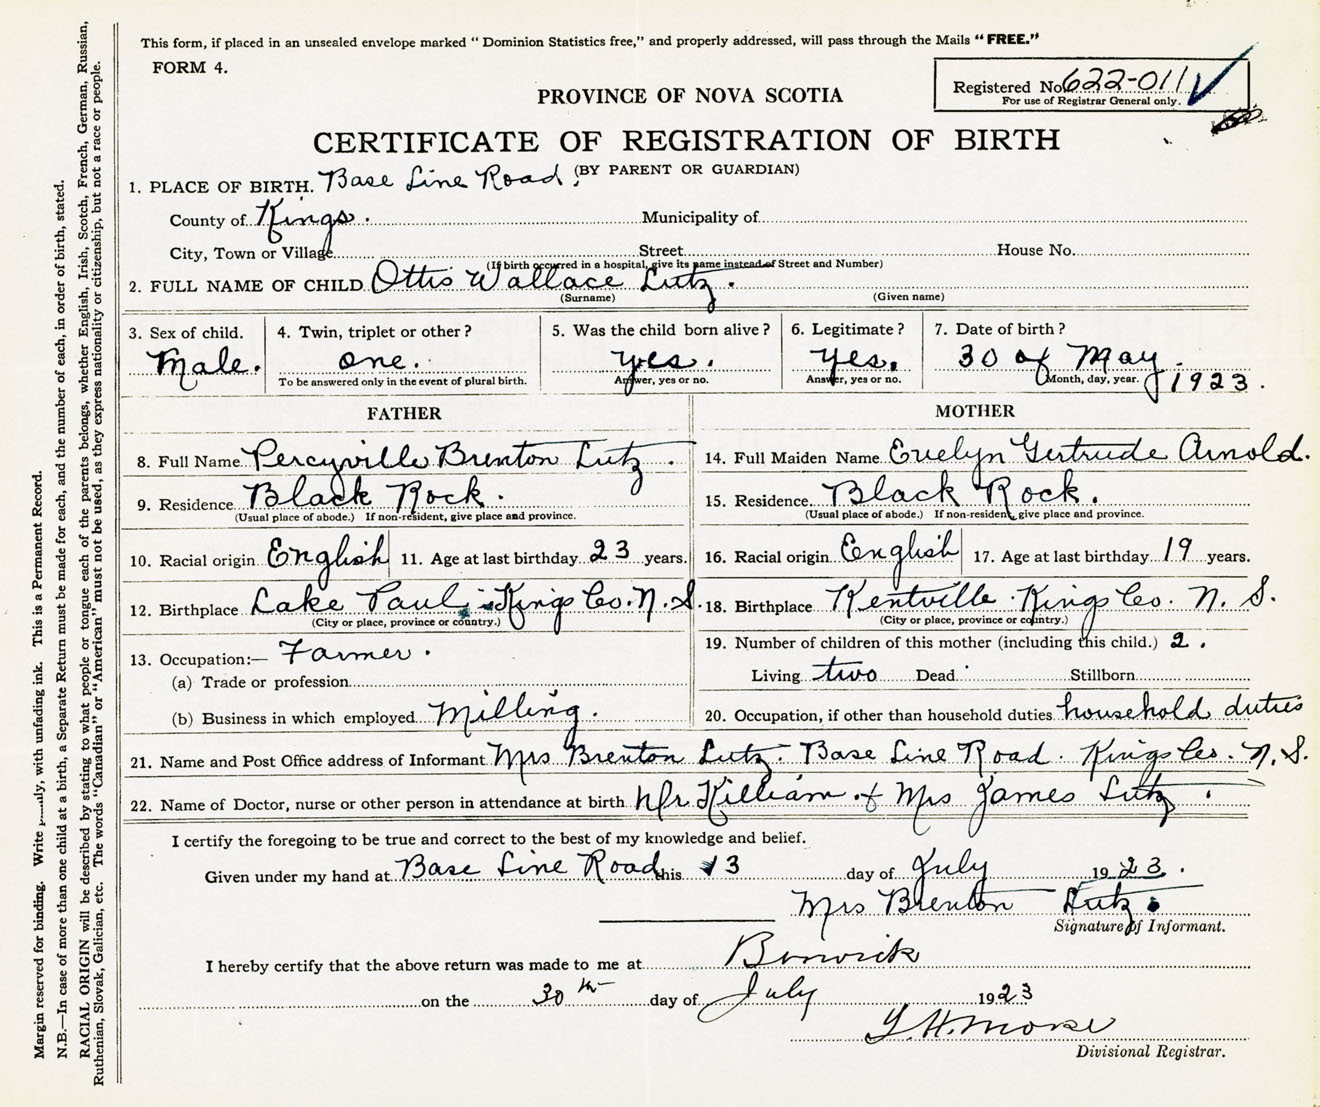 This form, if placed in an unsealed envelope marked "Dominion Statistics free," and properly addressed, will pass through the Mails "FREE."
FORM 4.
Registered No. 622-011 ✓
For use of Registrar General only.
PROVINCE OF NOVA SCOTIA
CERTIFICATE OF REGISTRATION OF BIRTH
(BY PARENT OR GUARDIAN)
1. PLACE OF BIRTH. Base Line Road.
County of Kings. Municipality of
City, Town or Village Street House No.
(If birth occurred in a hospital, give its name instead of Street and Number)
2. FULL NAME OF CHILD Ottis Wallace Lutz.
(Surname) (Given name)
3. Sex of child. 4. Twin, triplet or other? 5. Was the child born alive? 6. Legitimate? 7. Date of birth?
Male. one. yes. yes. 30 of May. 1923.
To be answered only in the event of plural birth. Answer, yes or no. Answer, yes or no. Month, day, year.
FATHER
8. Full Name Percyville Brenton Lutz.
9. Residence Black Rock.
(Usual place of abode.) If non-resident, give place and province.
10. Racial origin English 11. Age at last birthday 23 years.
12. Birthplace Lake Paul, Kings Co. N. S.
(City or place, province or country.)
13. Occupation:— Farmer.
(a) Trade or profession
(b) Business in which employed Milling.
MOTHER
14. Full Maiden Name Evelyn Gertrude Arnold.
15. Residence Black Rock.
(Usual place of abode.) If non-resident, give place and province.
16. Racial origin English 17. Age at last birthday 19 years.
18. Birthplace Kentville Kings Co. N. S.
(City or place, province or country.)
19. Number of children of this mother (including this child.) 2.
Living two Dead Stillborn
20. Occupation, if other than household duties household duties
21. Name and Post Office address of Informant Mrs Brenton Lutz. Base Line Road. Kings Co. N. S.
22. Name of Doctor, nurse or other person in attendance at birth Killiam & Mrs James Lutz.
I certify the foregoing to be true and correct to the best of my knowledge and belief.
Given under my hand at Base Line Road this 13 day of July 1923.
Mrs Brenton Lutz.
Signature of Informant.
I hereby certify that the above return was made to me at Berwick
on the 30th day of July 1923
Morse
Divisional Registrar.
Margin reserved for binding. Write with unfading ink. This is a Permanent Record.
N.B.—In case of more than one child at a birth, a Separate Return must be made for each, and the number of each, in order of birth, stated.
RACIAL ORIGIN will be described by stating to what people or tongue each of the parents belongs, whether English, Irish, Scotch, French, German, Russian,
Ruthenian, Slovak, Galician, etc. The words "Canadian" or "American" must not be used, as they express nationality or citizenship, but not a race or people.